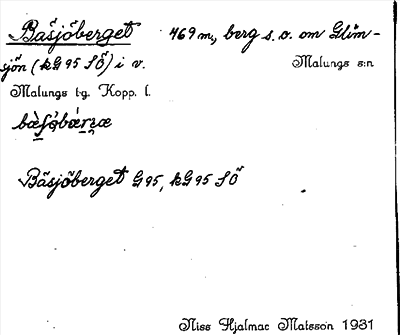 Bäsjöberget 469 m, berg s.o. om Glim-
sjön (kG 95 SÖ) i v. Malungs s:n
Malungs tg. Kopp. l.
Bäsjöberget G 95, kG 95 SÖ
Nils Hjalmar Matsson 1931